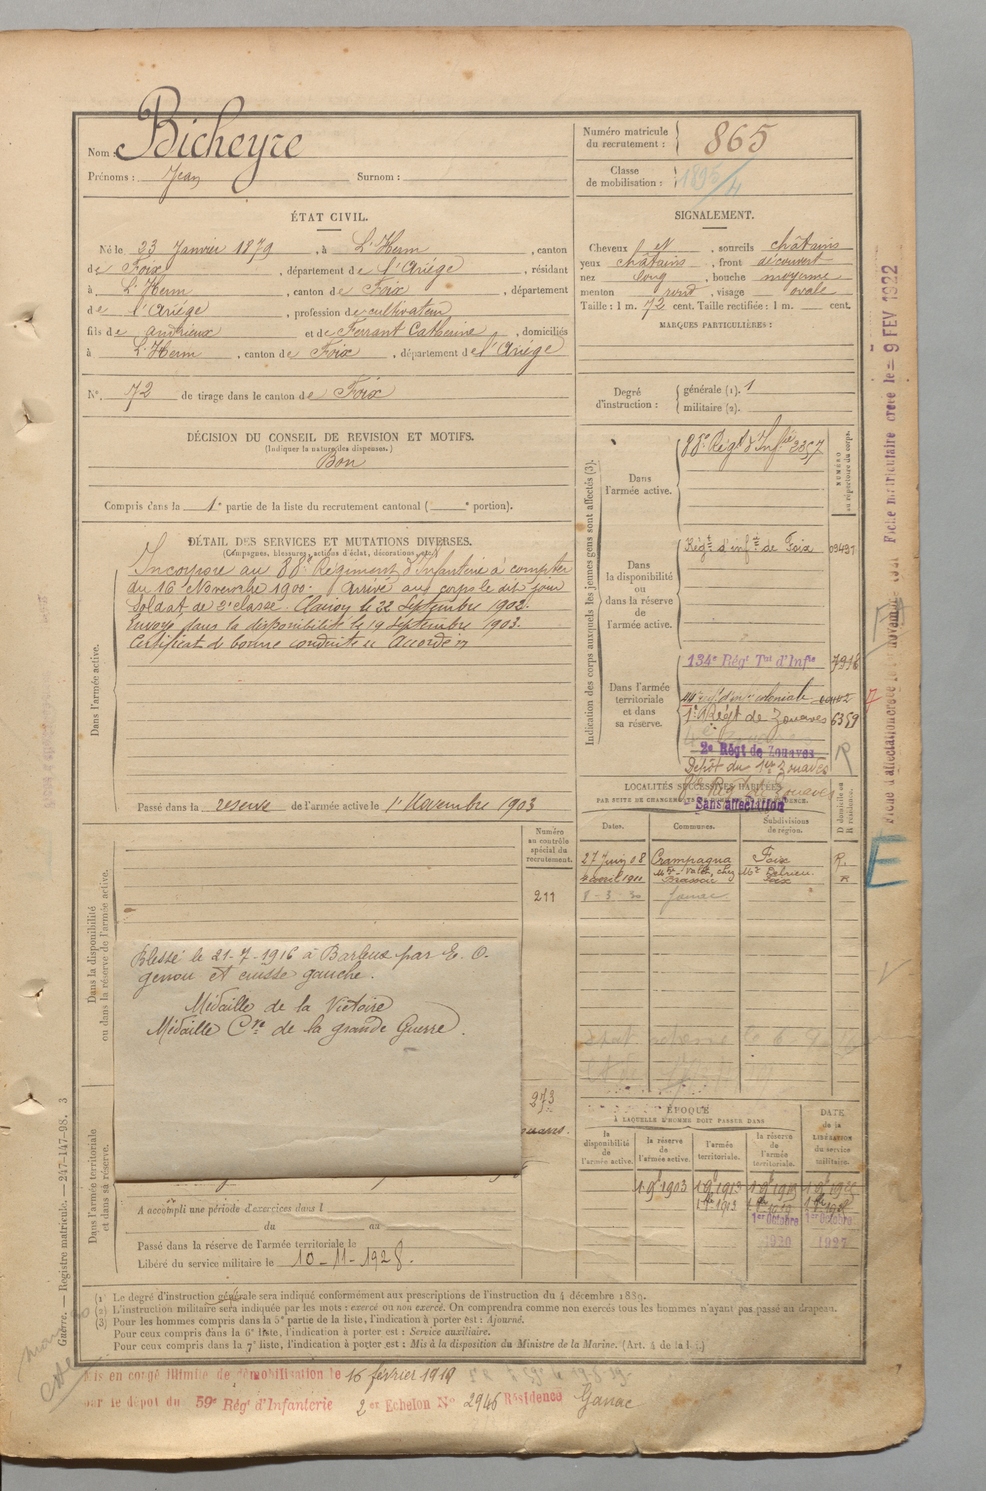 Nom : Bicheyre
Prénoms : Jean Surnom :
Numéro matricule du recrutement : 865
Classe de mobilisation :
ÉTAT CIVIL.
Né le 23 Janvier 1879, à L'Herm, canton
de Foix, département de l'Ariége, résidant
à L'Herm, canton de Foix, département
de l'Ariége, profession de cultivateur
fils de Andrieux et de Ferrant Catherine, domiciliés
à L'Herm, canton de Foix, département de l'Ariége
N° 72 de tirage dans le canton de Foix
SIGNALEMENT.
Cheveux et, sourcils châtains
yeux châtains, front découvert
nez long, bouche moyenne
menton rond, visage ovale
Taille : 1 m. 72 cent. Taille rectifiée : 1 m. cent.
MARQUES PARTICULIÈRES :
Degré d'instruction : générale (1). 1
militaire (2).
DÉCISION DU CONSEIL DE REVISION ET MOTIFS.
(Indiquer la nature des dispenses.)
Bon
Compris dans la 1e partie de la liste du recrutement cantonal ( e portion).
DÉTAIL DES SERVICES ET MUTATIONS DIVERSES.
(Campagnes, blessures, actions d'éclat, décorations, etc.)
Dans l'armée active.
Incorporé au 88e Régiment d'Infanterie à compter
du 16 Novembre 1900. Arrivé au corps le dit jour
Soldat de 2e classe. Clairon le 22 Septembre 1902.
Envoyé dans la disponibilité le 19 Septembre 1903.
Certificat de bonne conduite " Accordé "
Passé dans la réserve de l'armée active le 1er Novembre 1903
Indication des corps auxquels les jeunes gens sont affectés (3).
NUMÉRO au répertoire du corps.
Dans l'armée active.
88e Régt d'Infie 3357
Dans la disponibilité ou dans la réserve de l'armée active.
Régt d'infie de Foix 09491
Dans l'armée territoriale et dans sa réserve.
134e Régt Tal d'Infie
1er Régt de Zouaves 6359
2e Régt de Zouaves
R
Dépôt du 1er Zouaves
Sans affectation
LOCALITÉS SUCCESSIVES HABITÉES
PAR SUITE DE CHANGEMENTS DE RÉSIDENCE.
Dates. Communes. Subdivisions de région. D domicile ou R résidence.
27 Juin 08 Crampagna Foix R.
4 avril 1911 Foix R
8-3-30 Ganac
Numéro au contrôle spécial du recrutement.
211
273
Dans la disponibilité ou dans la réserve de l'armée active.
Blessé le 21-7-1916 à Barleux par E. O.
genou et cuisse gauche.
Médaille de la Victoire
Médaille Cve de la grande Guerre
Dans l'armée territoriale et dans sa réserve.
A accompli une période d'exercices dans l
du au
Passé dans la réserve de l'armée territoriale le
Libéré du service militaire le 10-11-1928.
ÉPOQUE
À LAQUELLE L'HOMME DOIT PASSER DANS
DATE de la LIBÉRATION du service militaire.
la disponibilité de l'armée active.
la réserve de l'armée active.
l'armée territoriale.
la réserve de l'armée territoriale.
1er Octobre 1er Octobre
1920 1927
(1) Le degré d'instruction générale sera indiqué conformément aux prescriptions de l'instruction du 4 décembre 1889.
(2) L'instruction militaire sera indiquée par les mots : exercé ou non exercé. On comprendra comme non exercés tous les hommes n'ayant pas passé au drapeau.
(3) Pour les hommes compris dans la 5e partie de la liste, l'indication à porter est : Ajourné.
Pour ceux compris dans la 6e liste, l'indication à porter est : Service auxiliaire.
Pour ceux compris dans la 7e liste, l'indication à porter est : Mis à la disposition du Ministre de la Marine. (Art. 4 de la loi.)
Mis en congé illimité de démobilisation le 16 février 1919
par le dépôt du 59e Régt d'Infanterie 2er Echelon N° 2946 Résidence Ganac
Guerre. — Registre matricule. — 247-147-98. 3
Fiche matriculaire créée le 9 FEV 1922
E